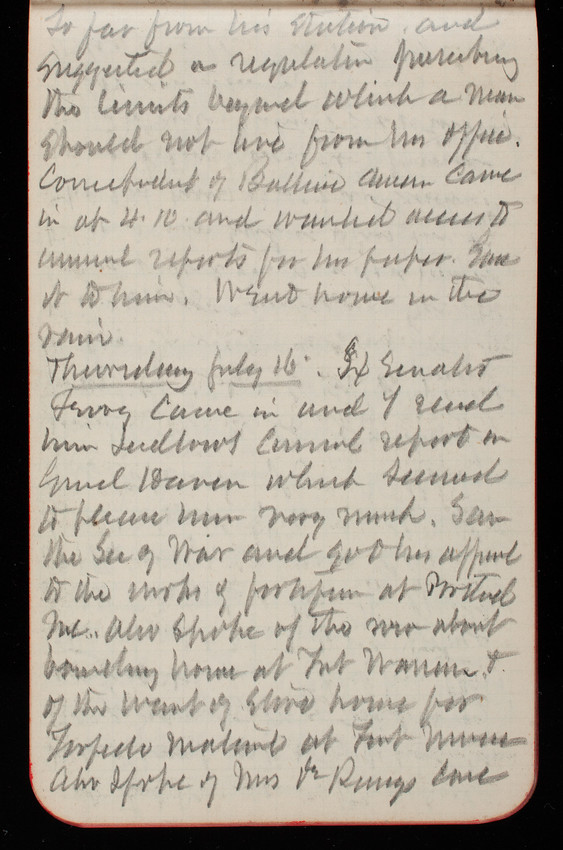 so far from his station and
suggested a regulation prescribing
the limits beyond which a man
should not live from his office.
Correspondent of American came
in at 4.10 and wanted access to
annual reports for his paper. Gave
it to him. Went home in the
rain.
Thursday July 16. Ex Senator
Ferry came in and I read
him Ludlow's annual report on
Grand Haven which seemed
to please him very much. Saw
the Sec of War and got his approval
to the works of at Portland
Me. Also spoke of the row about
house at Fort Warren &
of the want of store house for
Torpedo material at Fort Monroe
Also spoke of Mrs Dr case